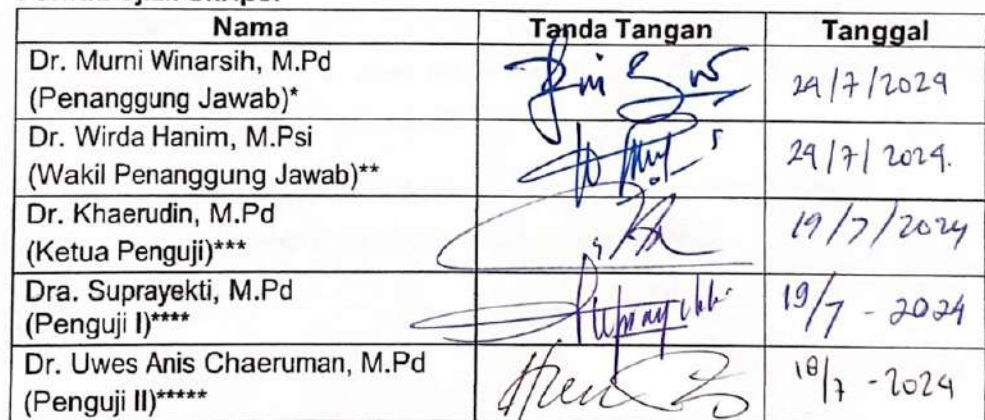 Nama Tanda Tangan Tanggal
Dr. Murni Winarsih, M.Pd
(Penanggung Jawab)* 24/7/2024
Dr. Wirda Hanim, M.Psi
(Wakil Penanggung Jawab)** 24/7/2024.
Dr. Khaerudin, M.Pd
(Ketua Penguji)*** 19/7/2024
Dra. Suprayekti, M.Pd
(Penguji I)**** 19/7 - 2024
Dr. Uwes Anis Chaeruman, M.Pd
(Penguji II)***** 18/7 - 2024